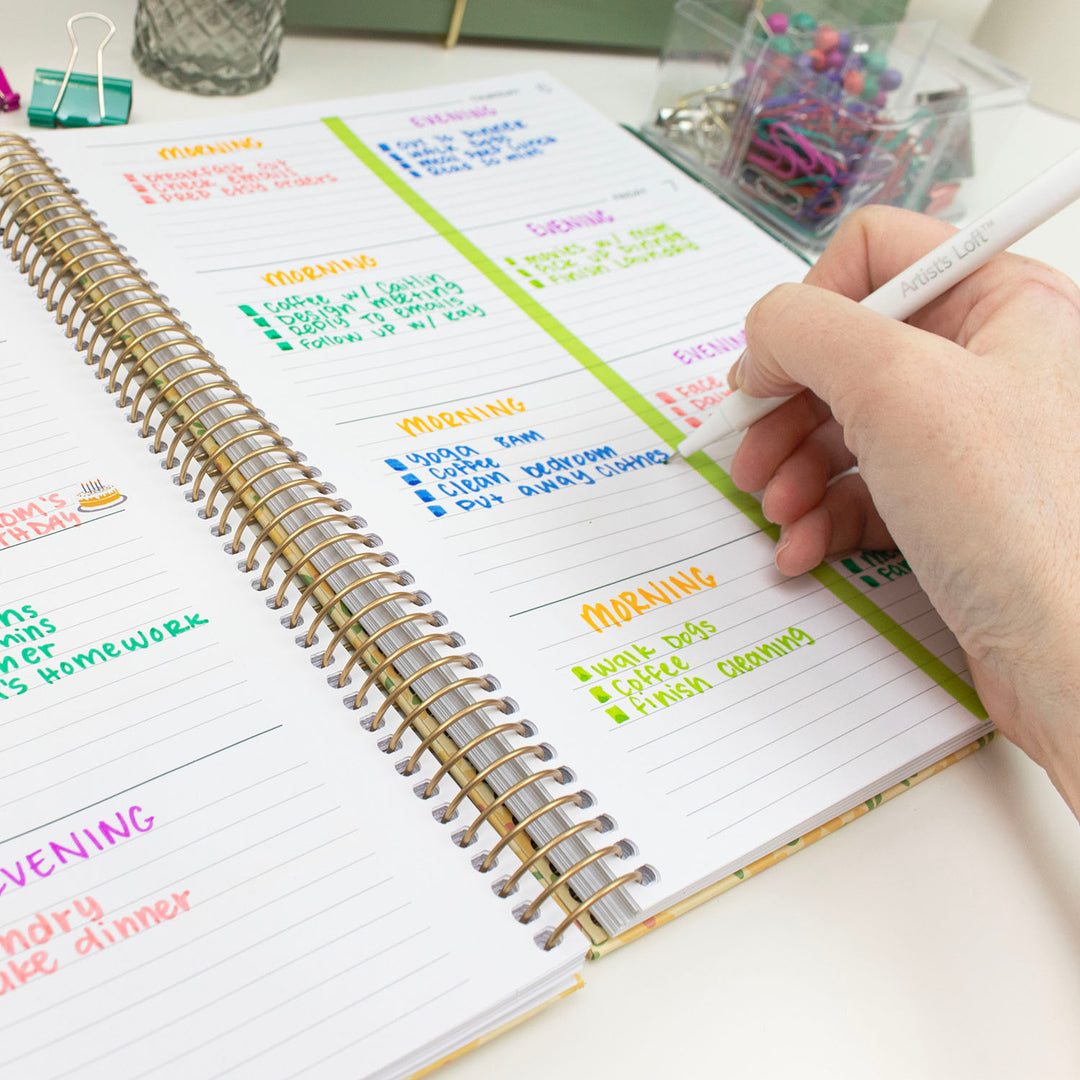 MORNING
breakfast out
Check emails
Prep etsy orders
THURSDAY
6
EVENING
out to dinner
walk dogs
Read 30 mins
MORNING
Coffee w/ Caitlin
Design meeting
Reply to emails
Follow up w/ Kay
FRIDAY
7
EVENING
movies w/ mom
Pick up dinner
Finish laundry
MORNING
yoga 8AM
Coffee
Clean bedroom
Put away clothes
EVENIN
Face
MORNING
walk Dogs
Coffee
finish cleaning
OM'S
THDAY
ns
mins
ner
's Homework
EVENING
ndry
ake dinner
Artist's Loft™